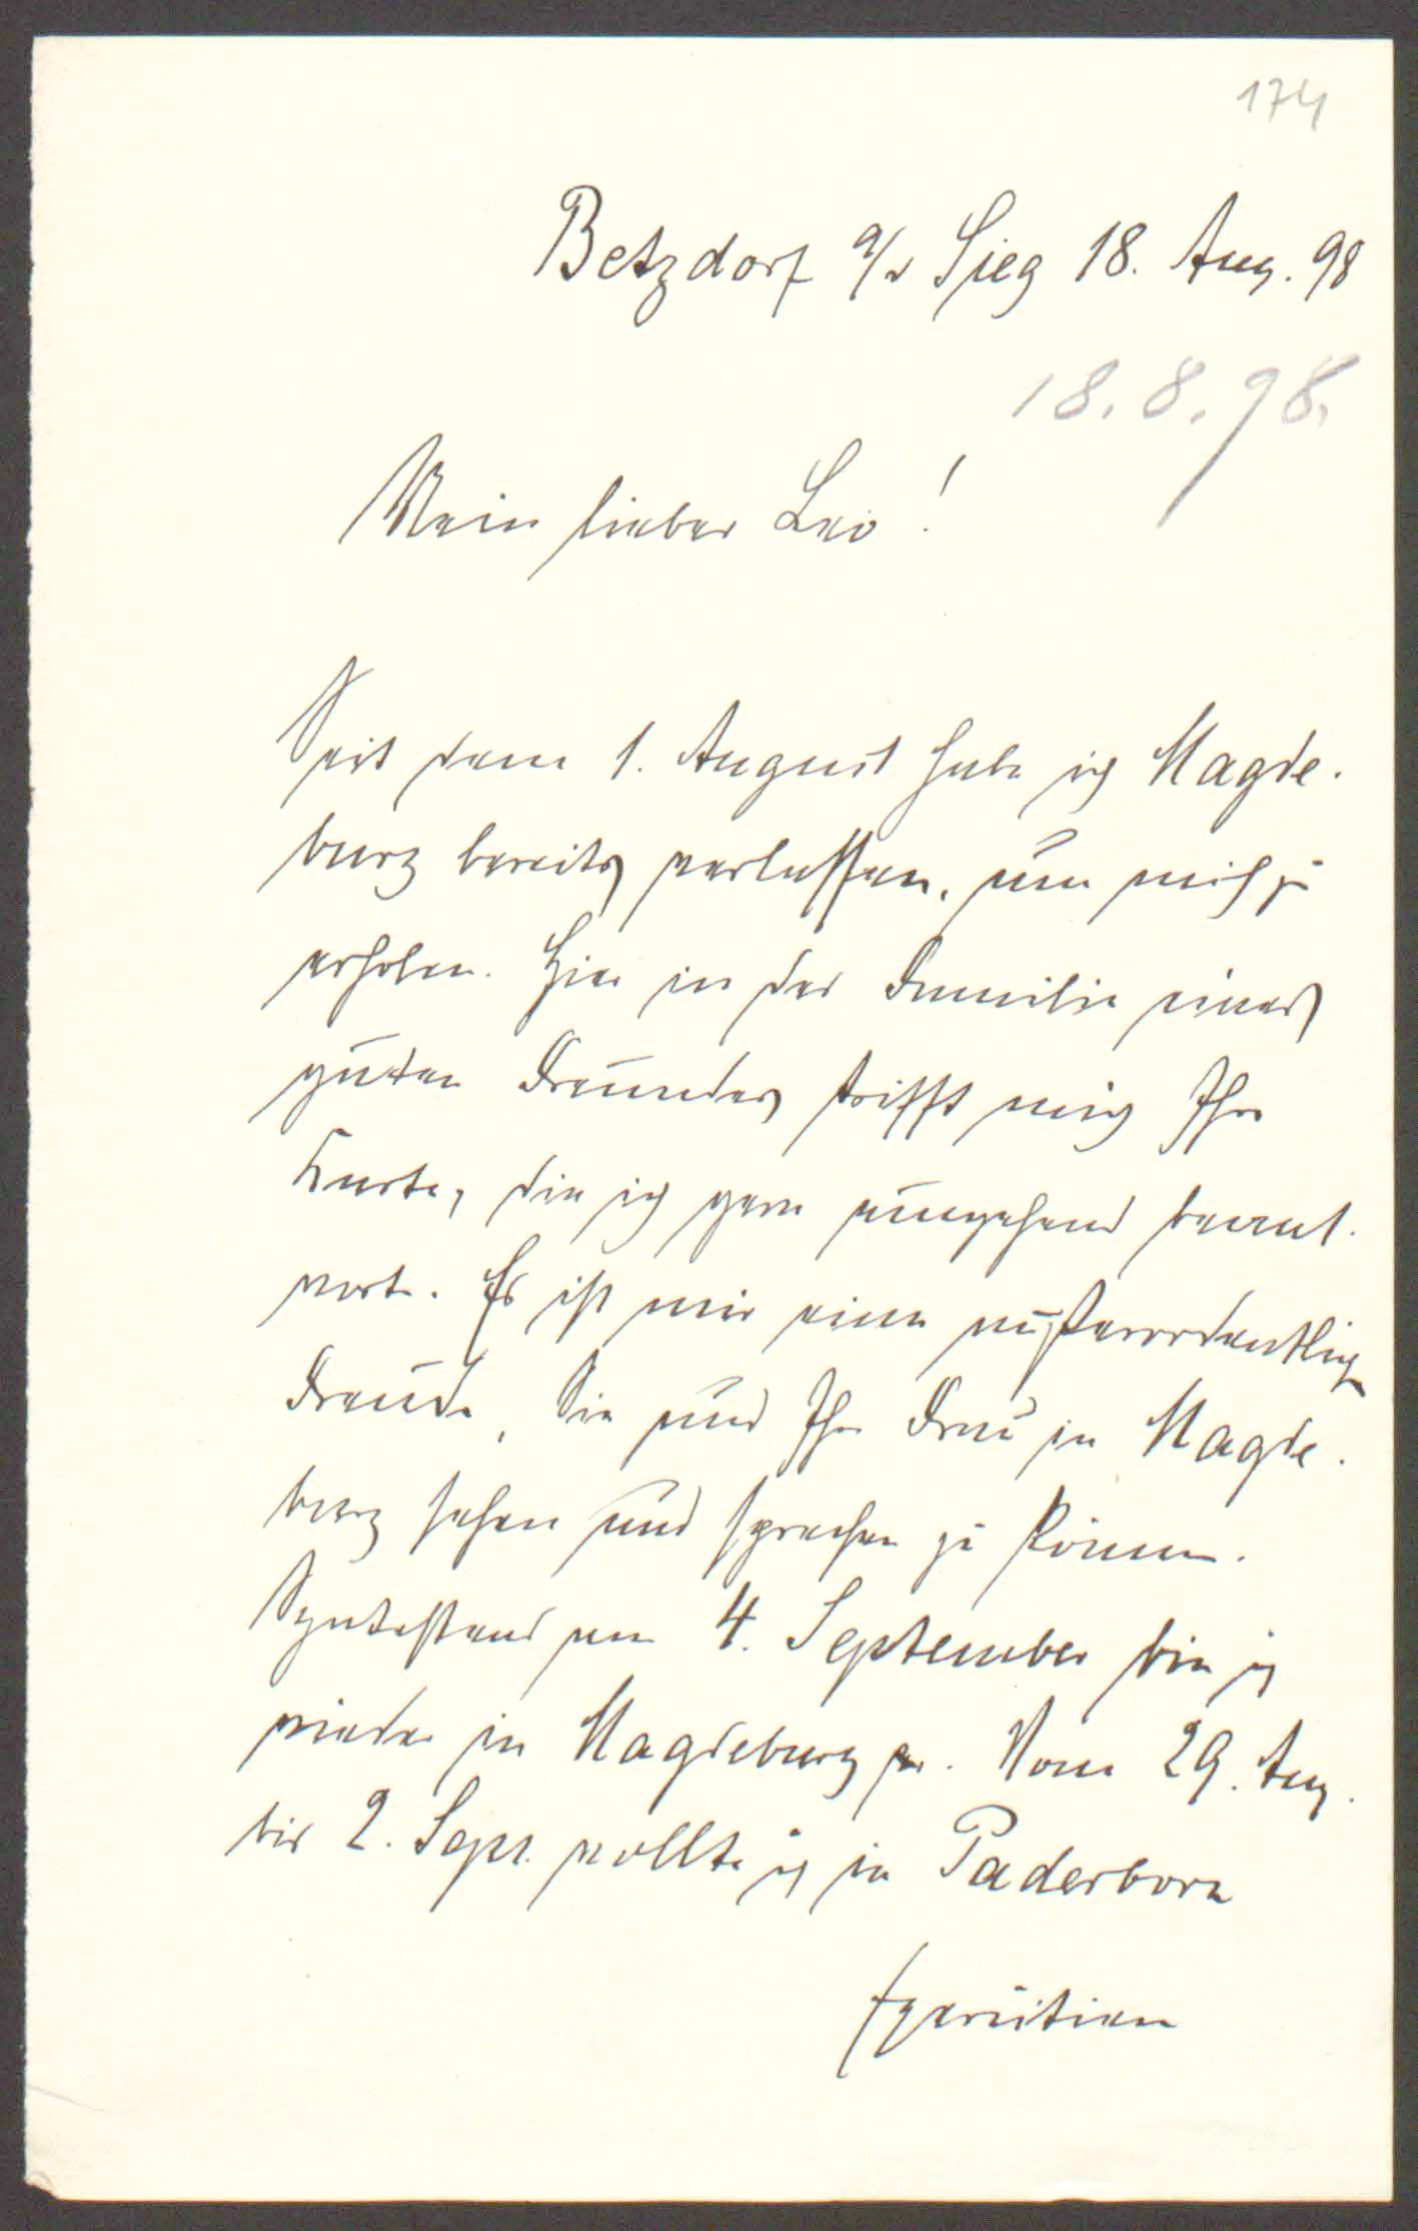 174
Betzdorf a/d Sieg 18. Aug. 98
18.8.98.
Mein lieber Leo!
Seit dem 1. August habe ich Magde-
burg bereits verlassen, um mich zu
erholen. Hier in der Familie eines
guten Freundes trifft mich Ihre
Karte, die ich gern umgehend beant-
worte. Es ist mir eine außerordentliche
Freude, Sie und Ihre Frau in Magde-
burg sehen und sprechen zu können.
Spätestens am 4. September bin ich
wieder in Magdeburg. Vom 29. Aug.
bis 2. Sept. wollte ich in Paderborn
Exerzitien